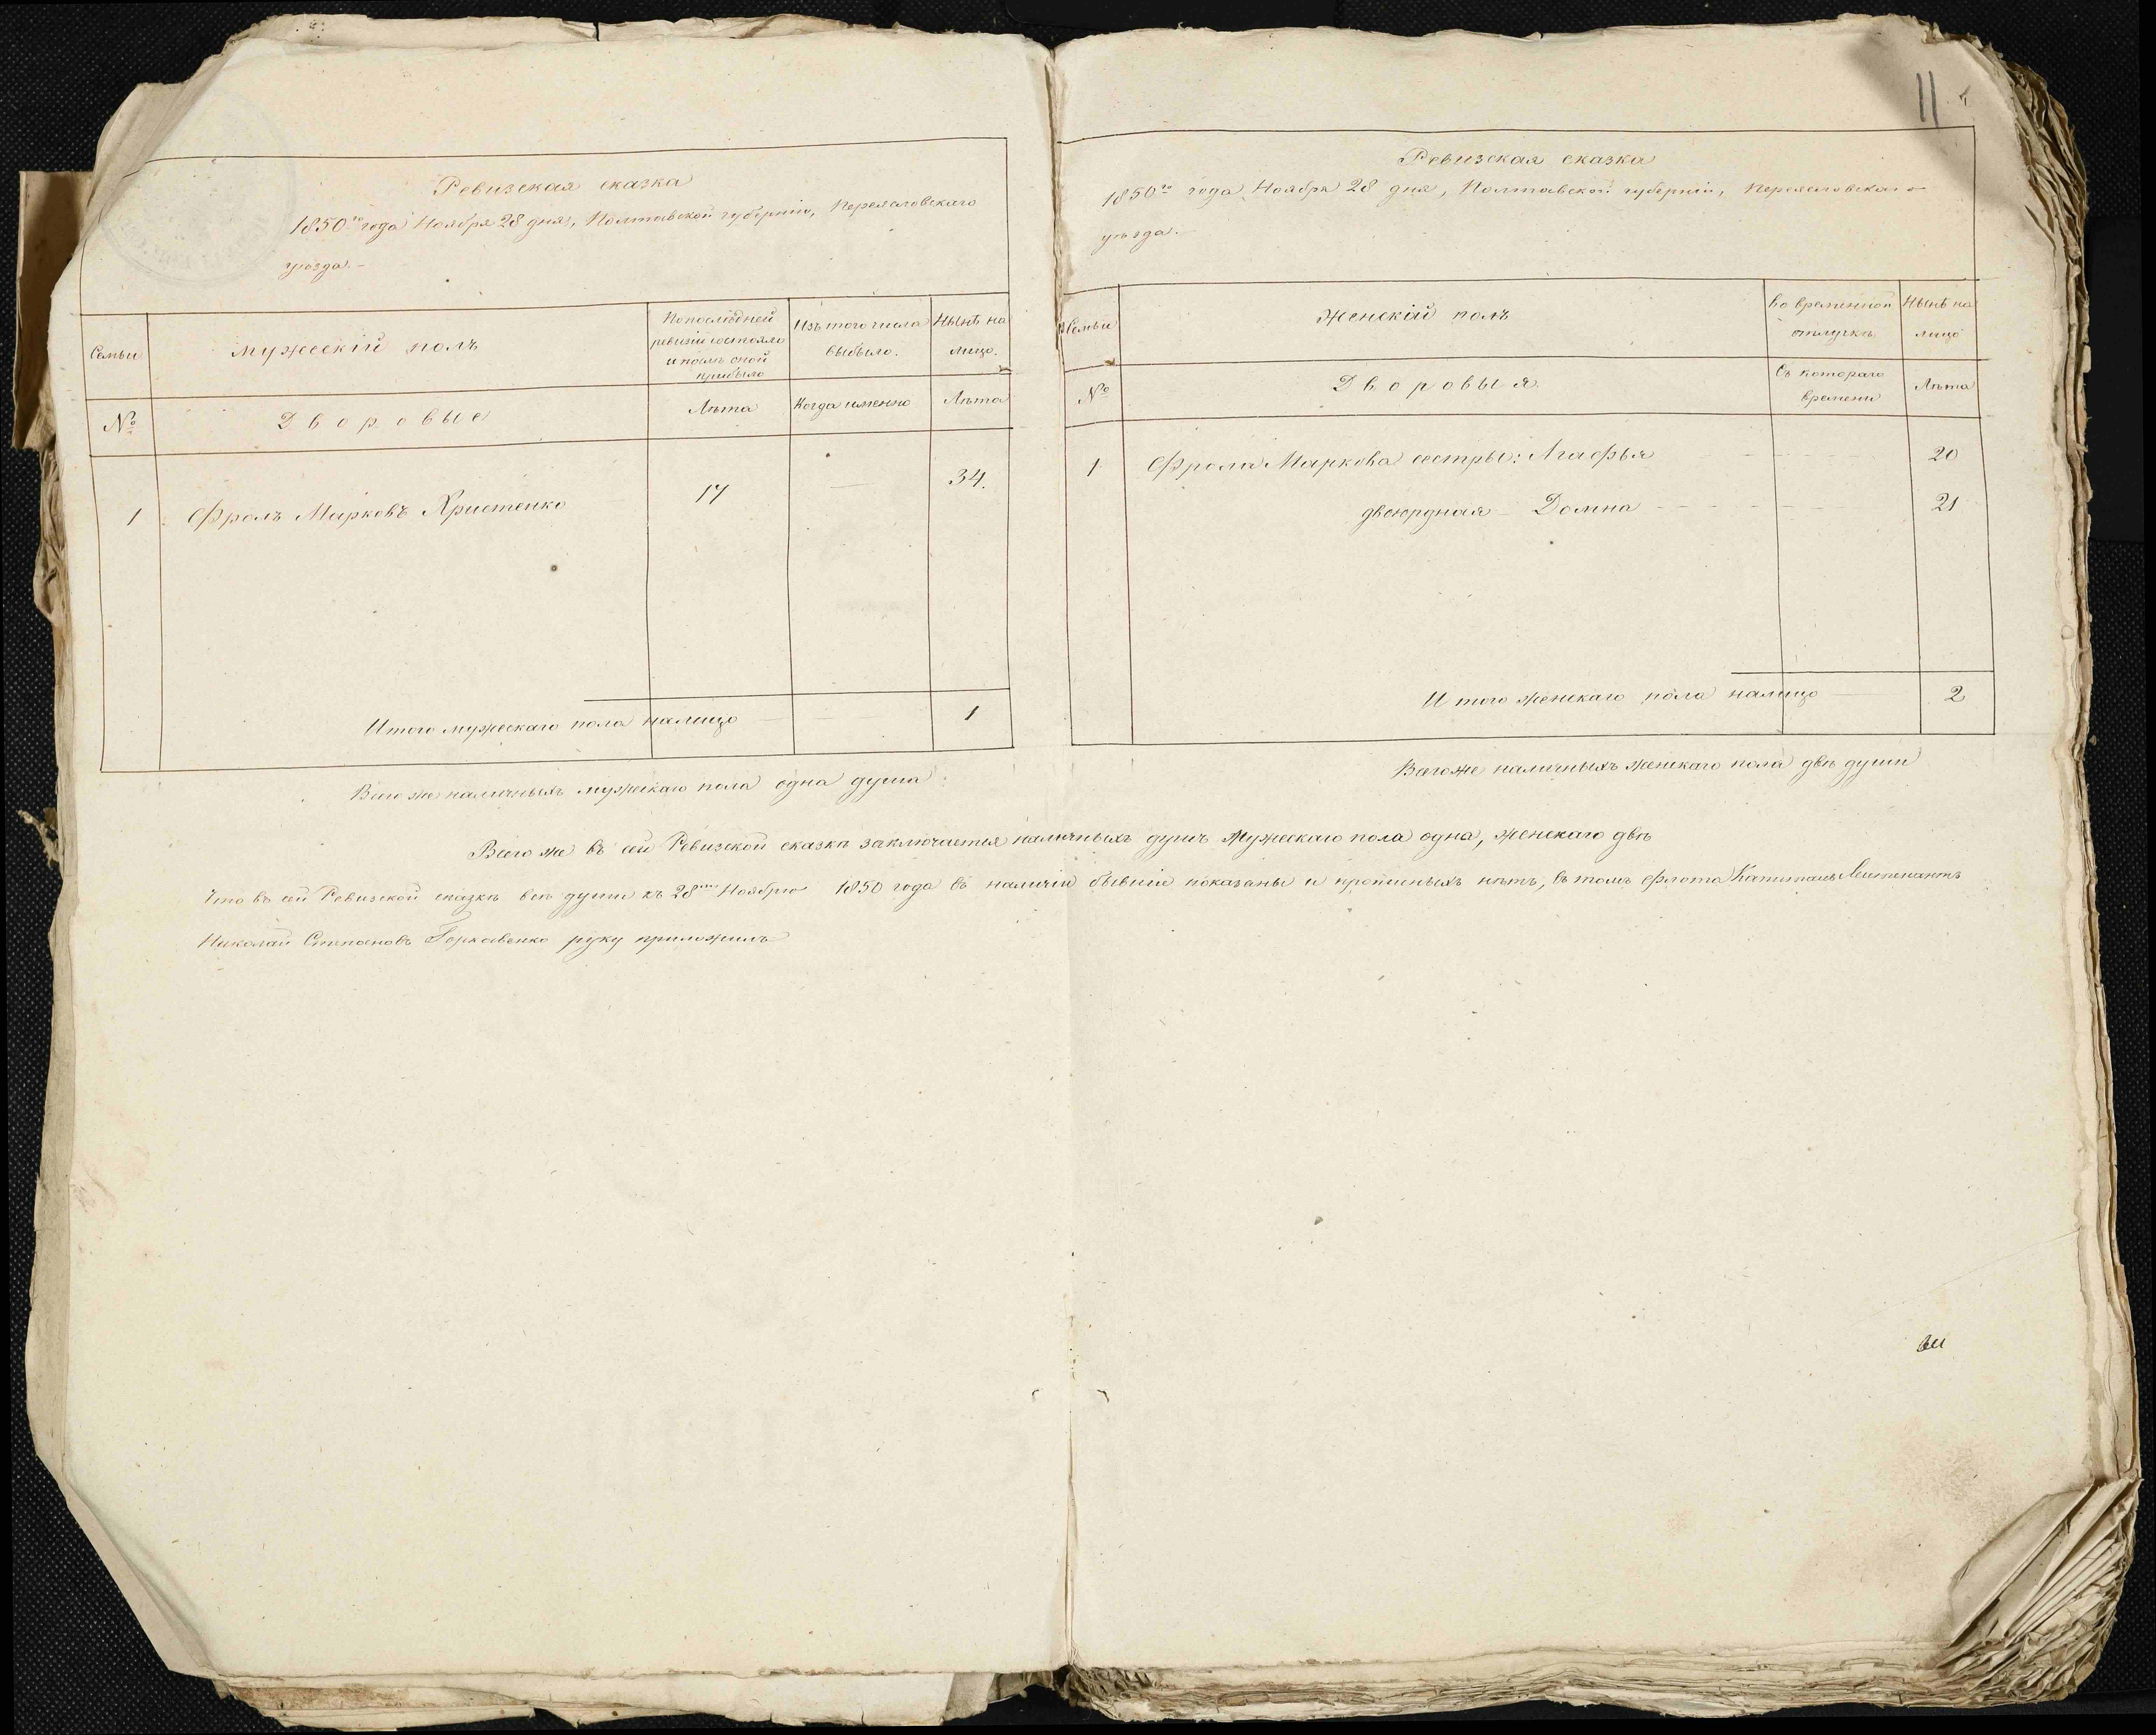 Ревизская сказка
1850го года Ноября 28 дня, Полтавской губернии, Переясловскаго
уѣзда.-
Семьи
Мужескій полъ
Попослѣдней
ревизіи состояло
и послѣ оной
прибыло
Изъ того числа
выбыло.
Нынѣ на
лицо.
№
Дворовые
Лѣта
Когда именно
Лѣта
1
Фролъ Марковъ Христенко
17
—
34.
Итого мужескаго пола налицо
1
Всего же наличныхъ мужескаго пола одна душа
11
Ревизская сказка
1850го года Ноября 28 дня, Полтавской губерніи, Переясловскаго
уѣзда.-
Семьи
Женскій полъ
Во временной
отлучкѣ
Нынѣ на
лицо
№
Дворовыя
Съ котораго
времени
Лѣта
1
Фрола Маркова сестры: Агафья
20
двоюрдная - Домна
21
Итого женскаго пола налицо
2
Всего же наличныхъ женскаго пола двѣ души
Всего же въ сей Ревизской сказкѣ заключается наличныхъ душъ мужескаго пола одна, женскаго двѣ
Что въ сей Ревизской сказкѣ всѣ души къ 28му Ноябрю 1850 года въ наличіи бывшіе показаны и прописныхъ нѣтъ, въ томъ флота Капитанъ Лейтенантъ
Николай Степановъ руку приложилъ